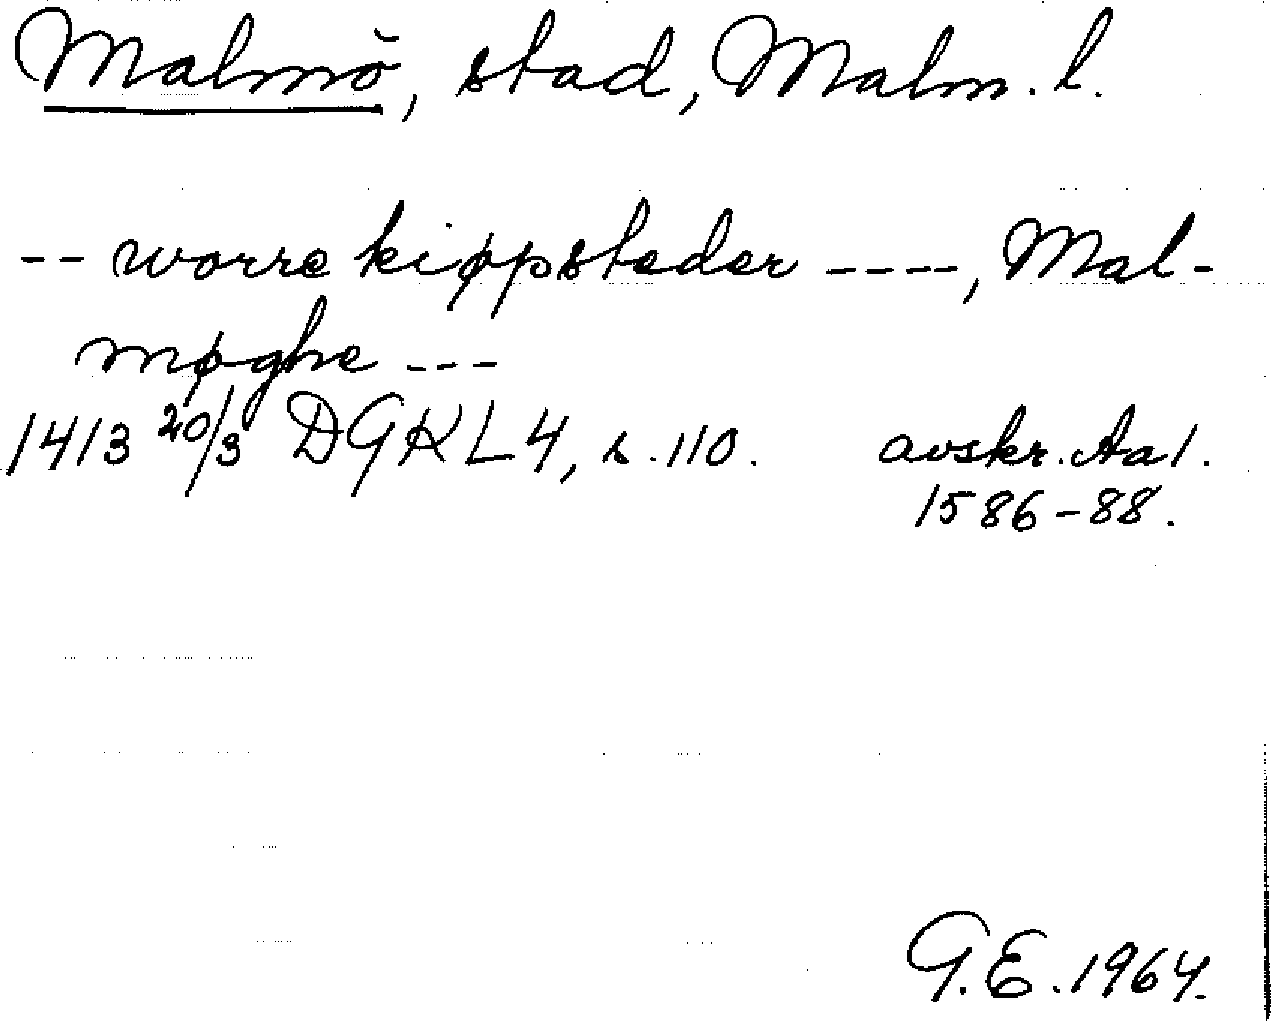 Malmö, stad, Malm. l.
-- worre kiøpsteder ----, Mal-
møghe ---
1413 20/3 DGKL4, s. 110. avskr. Aa 1.
1586-88.
G.E. 1964.